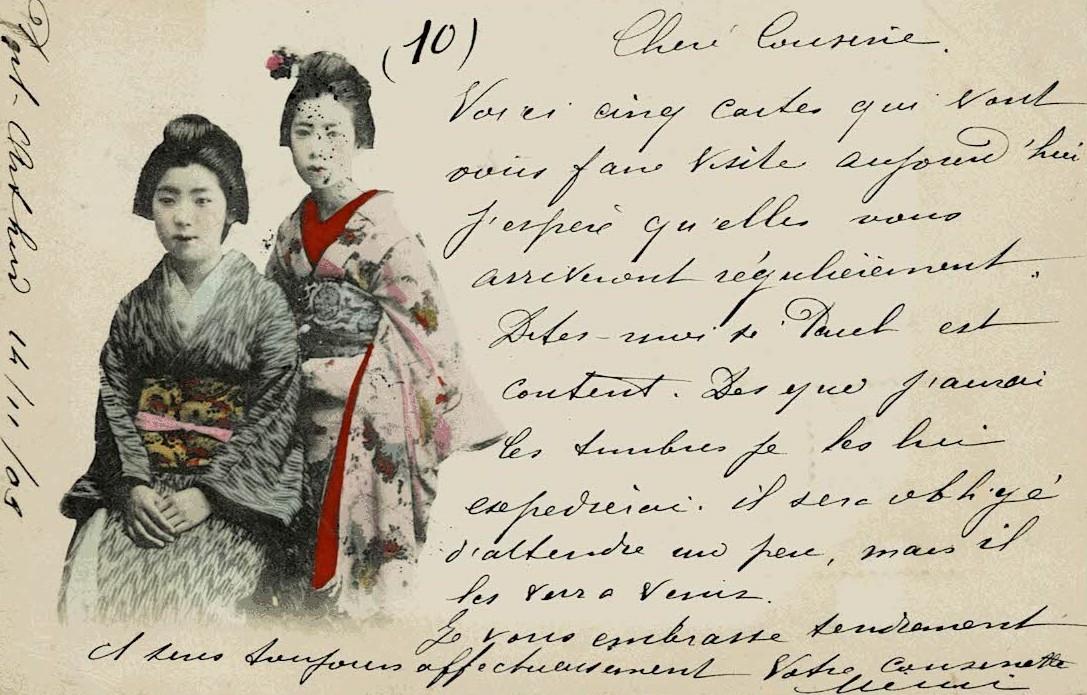 (10)
Cheré Cousine.
Voici cinq cartes qui vont
vous faire visite aujourd'hui
J'espère qu'elles vous
arriveront régulièrement.
Dites-moi si Paul est
content. Des que j'aurai
les timbres je les lui
expedierai. il sera obligé
d'attendre un peu, mais il
les verra venir.
Je vous embrasse tendrement
et suis toujours affectueusement Votre cousinette
Mimi
Port-Arthur 14/11/03